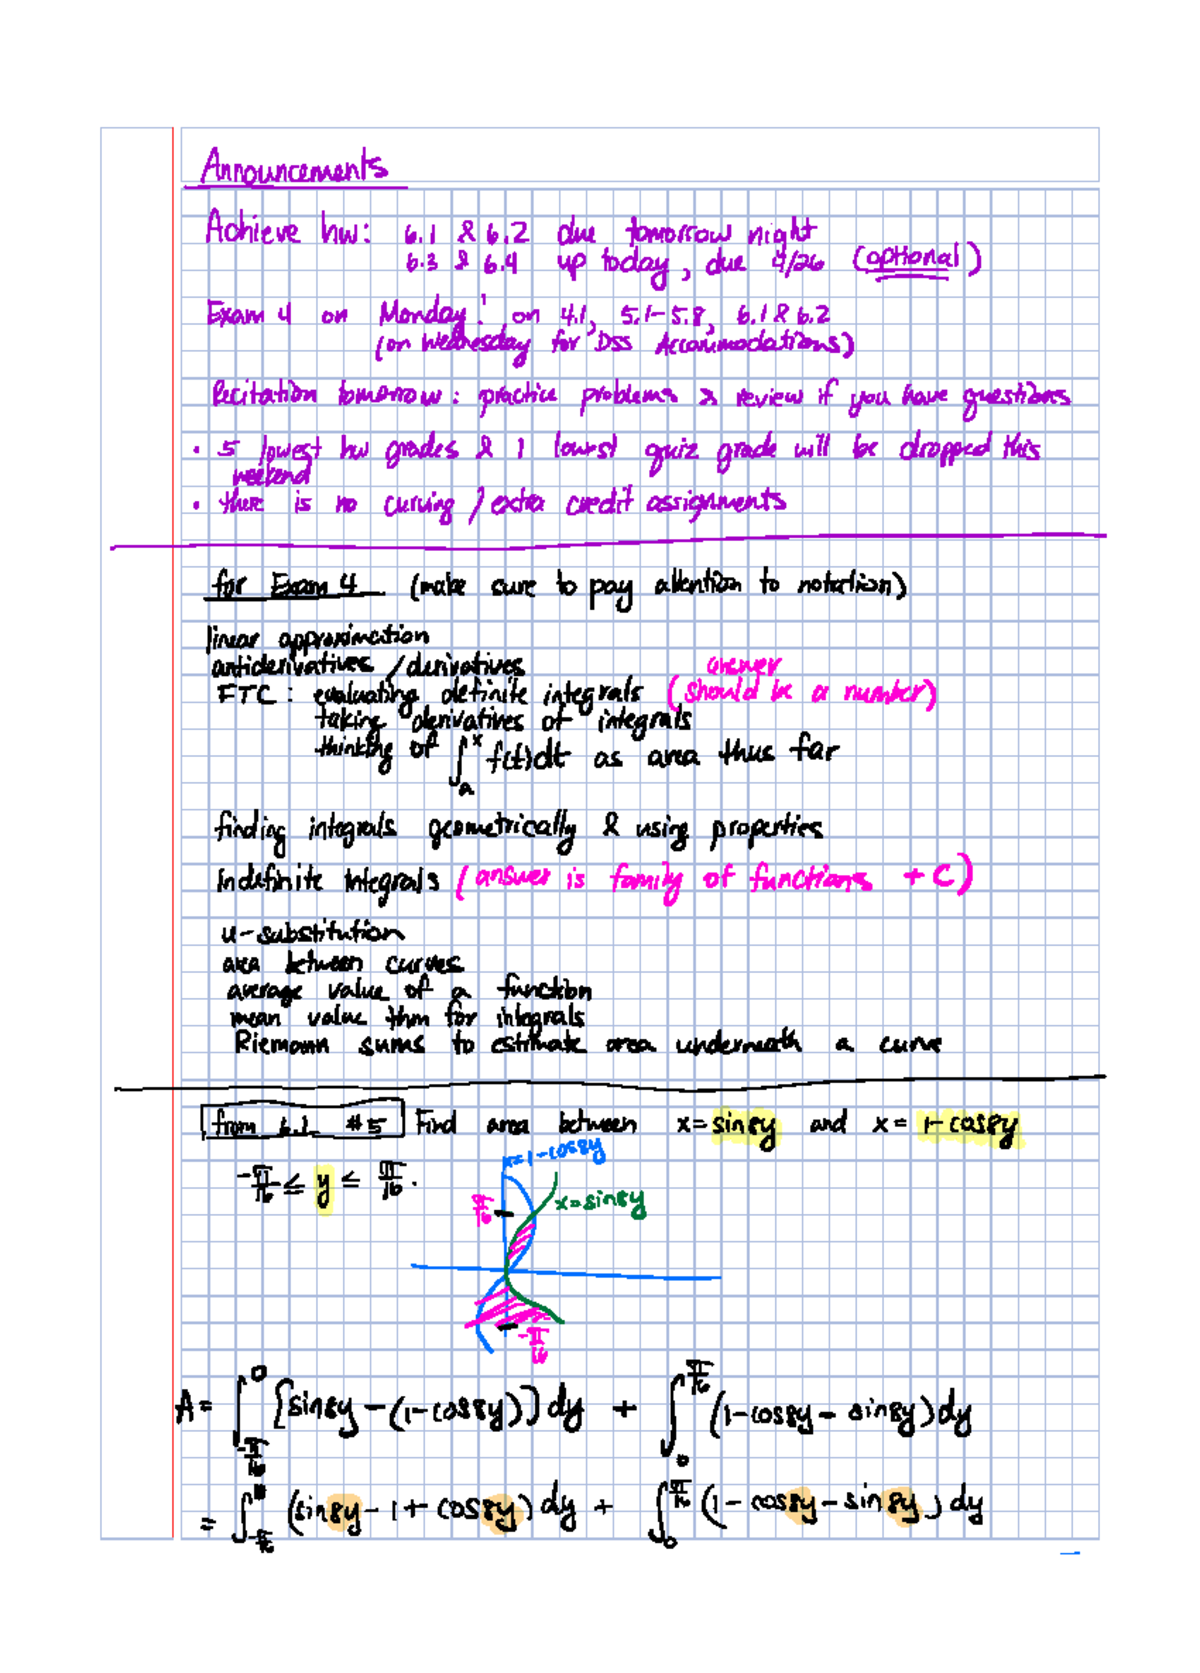 Announcements
Achieve hw: 6.1 & 6.2 due tomorrow night
6.3 & 6.4 up today, due 4/26 (optional)
Exam 4 on Monday! on 4.1, 5.1-5.8, 6.1 & 6.2
(on Wednesday for DSS Accommodations)
Recitation tomorrow: practice problems & review if you have questions
• 5 lowest hw grades & 1 lowest quiz grade will be dropped this
weekend
• there is no curving / extra credit assignments
for Exam 4 (make sure to pay attention to notation)
linear approximation
antiderivatives / derivatives
answer
FTC: evaluating definite integrals (should be a number)
taking derivatives of integrals
thinking of ∫_a^x f(t)dt as area thus far
finding integrals geometrically & using properties
indefinite integrals (answer is family of functions + C)
u-substitution
area between curves
average value of a function
mean value thm for integrals
Riemann sums to estimate area underneath a curve
from 6.1 #5 Find area between x=sin8y and x=1-cos8y
-π/16 ≤ y ≤ π/16.
x=1-cos8y
π/16
x=sin8y
-π/16
A = ∫_{-π/16}^0 [sin8y-(1-cos8y)]dy + ∫_0^{π/16} (1-cos8y-sin8y)dy
= ∫_{-π/16}^0 (sin8y-1+cos8y)dy + ∫_0^{π/16} (1-cos8y-sin8y)dy